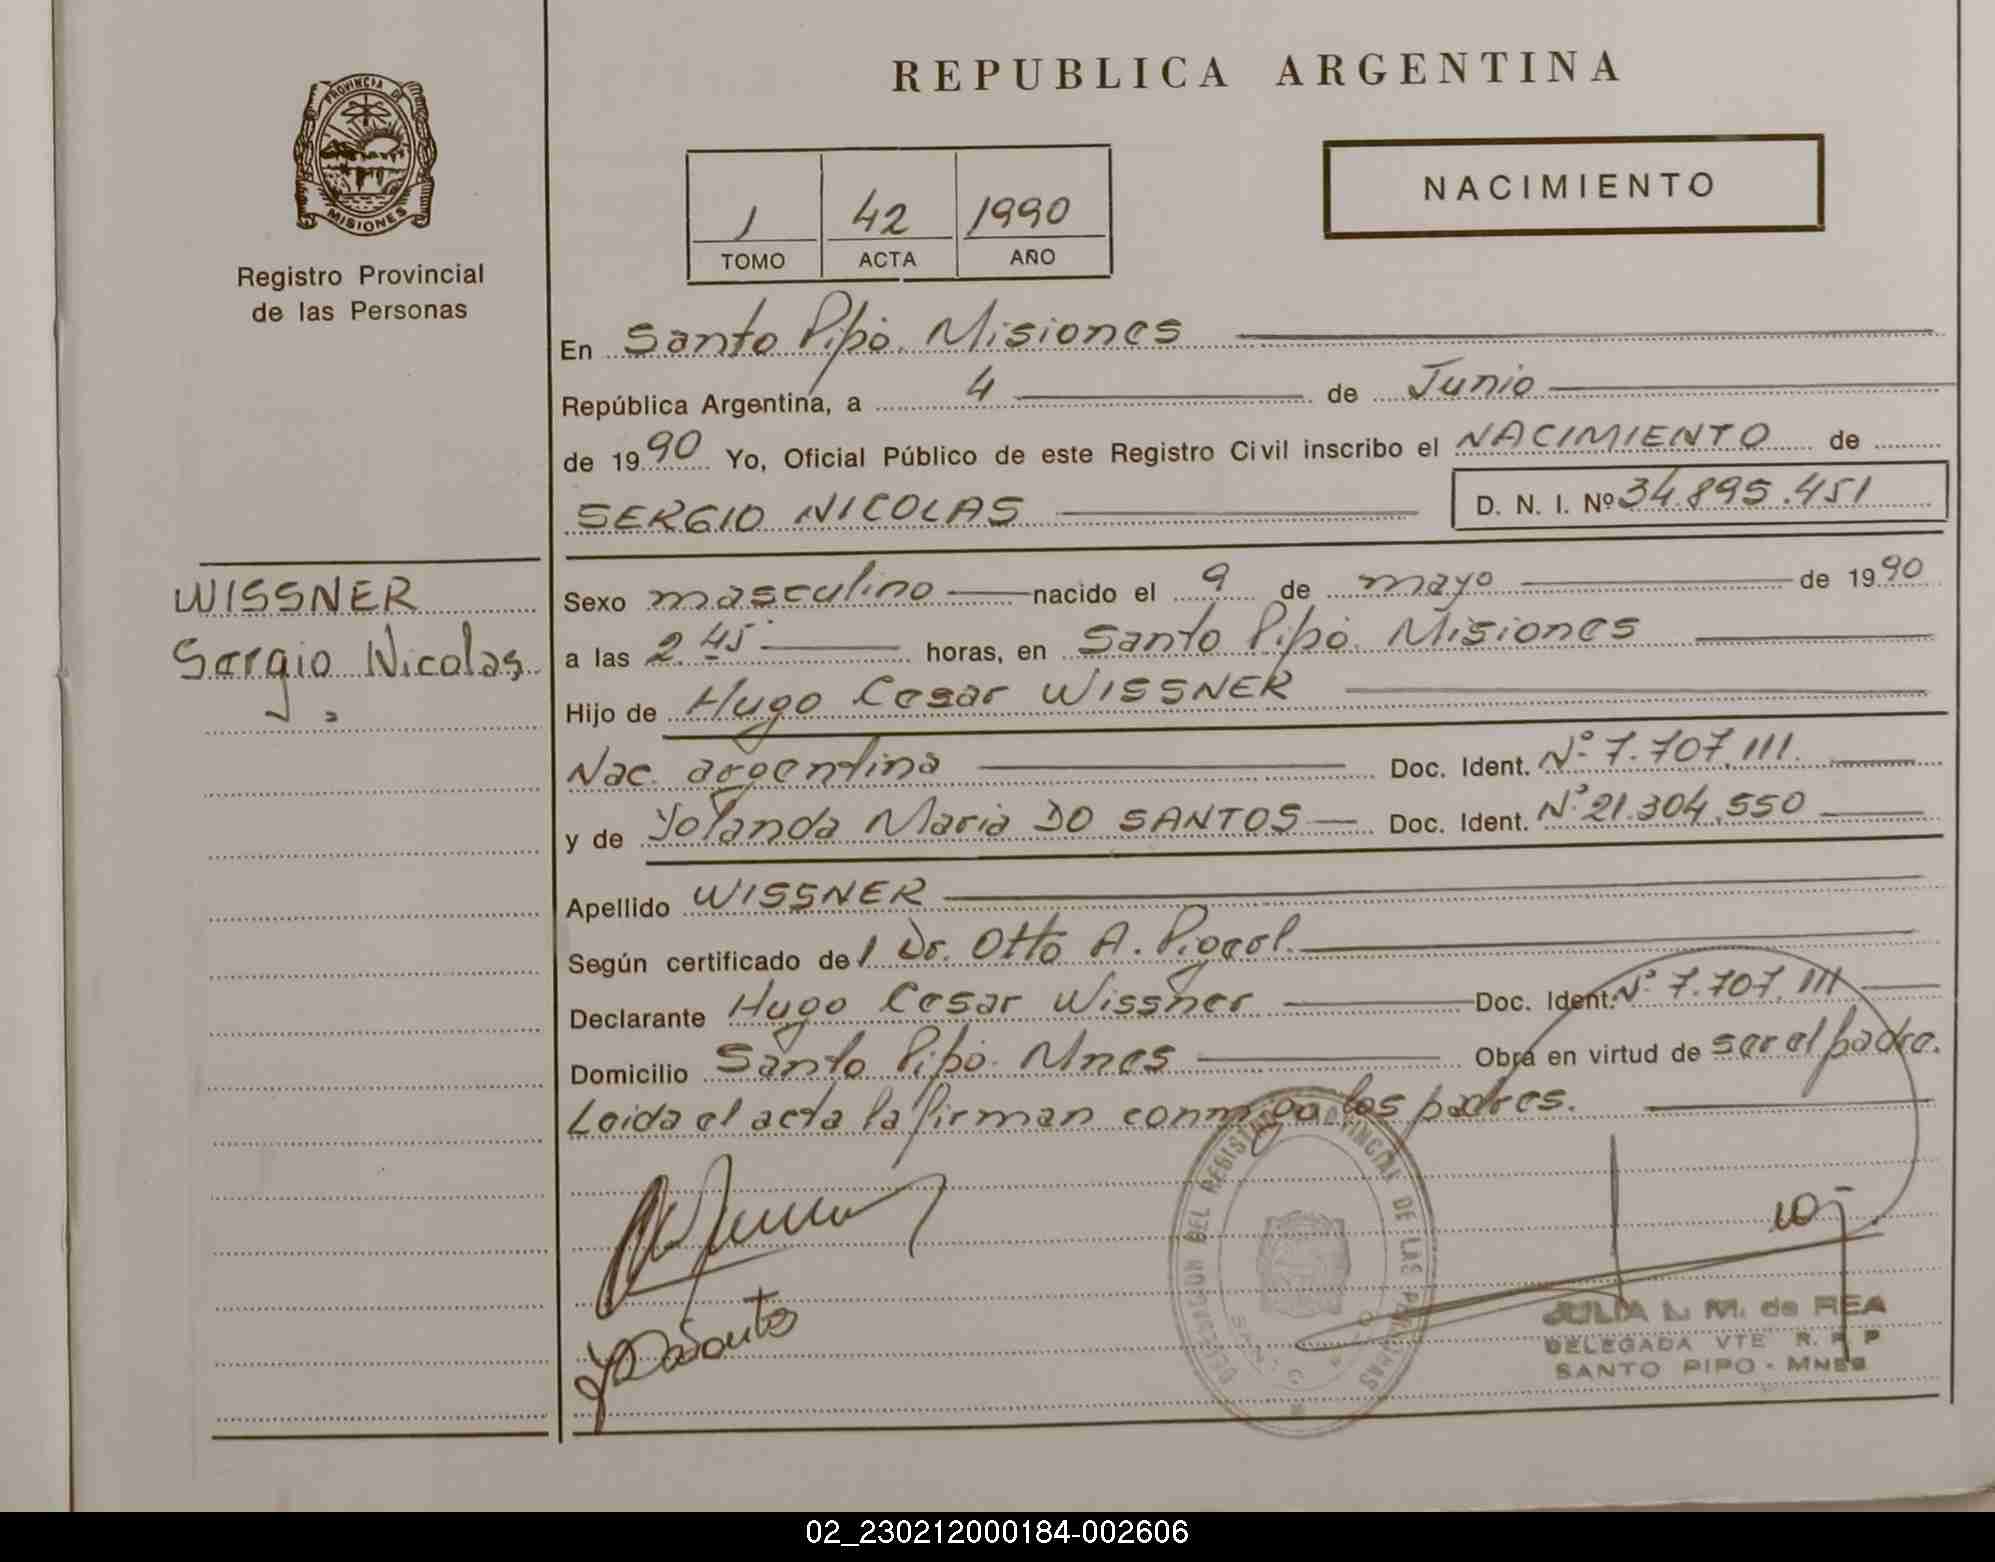 REPUBLICA ARGENTINA
PROVINCIA DE
MISIONES
Registro Provincial
de las Personas
NACIMIENTO
1 42 1990
TOMO ACTA AÑO
En Santo Pipó. Misiones
República Argentina, a 4 de Junio
de 1990 Yo, Oficial Público de este Registro Civil inscribo el NACIMIENTO de
SERGIO NICOLAS D. N. I. Nº 34.895.451
WISSNER
Sergio Nicolas
Sexo masculino nacido el 9 de mayo de 1990
a las 2.45 horas, en Santo Pipó. Misiones
Hijo de Hugo Cesar WISSNER
Nac. argentina Doc. Ident. Nº 7.707.111.
y de Yolanda Maria DO SANTOS Doc. Ident. Nº 21.304.550
Apellido WISSNER
Según certificado del Dr. Otto A.
Declarante Hugo Cesar Wissner Doc. Ident. Nº 7.707.111
Domicilio Santo Pipó. Mnes Obra en virtud de ser el padre.
Leida el acta la firman conmigo los padres.
DELEGACION DEL REGISTRO PROVINCIAL DE LAS PERSONAS
JULIA L. M. de REA
DELEGADA VTE R. P. P
SANTO PIPO - MNES
02_230212000184-002606